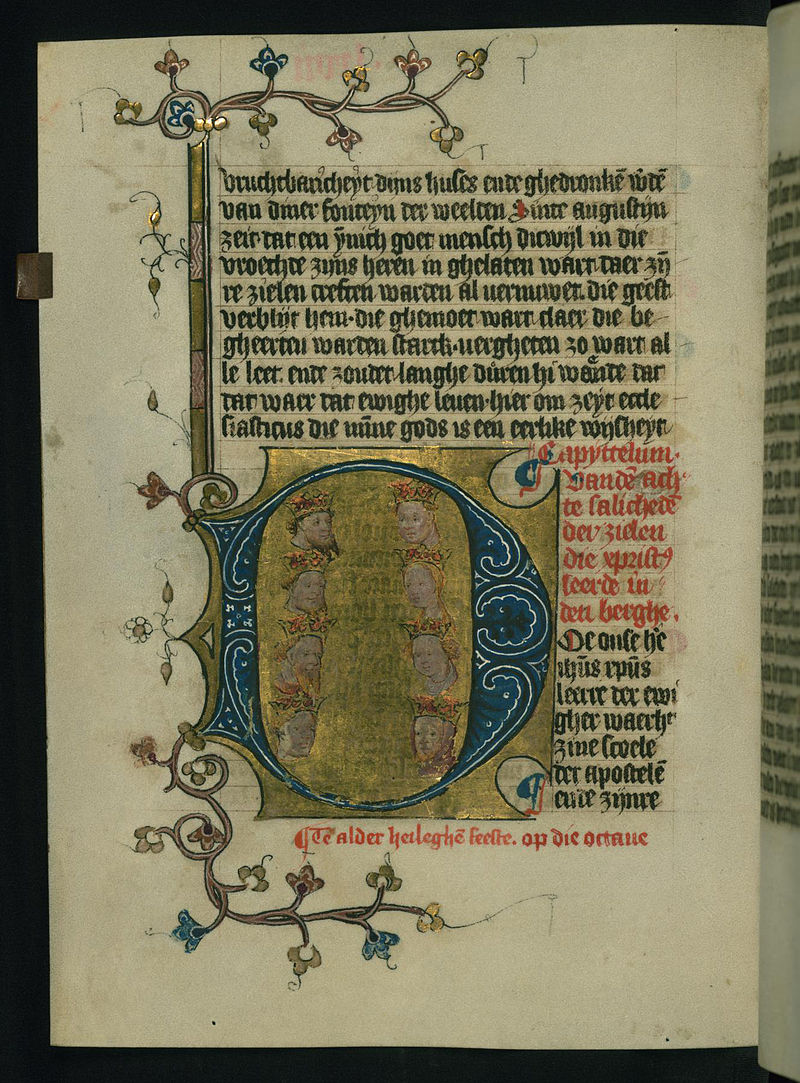 vruchtbaricheyt dijns huses ende ghedronkē w̄dē
van dijner fonteyn der weelden Sinte augustijn
zeit dat een ȳnich goet mensch diewijl in die
vroechde zijns heren in ghelaten wart daer zij
re zielen creften warden al vernuwet. die geest
verblijt hem. die ghemoet wart claer die be-
gheerten warden starck. vergheten zo wart al
le leet. ende zonder langhe duren hi waende dat
dat waer dat ewighe leuen. hier om zeyt eccle
siasticus die mīne gods is een eerlike wijsheyt
Capyttelum.
Vandē ach-
te salichedē
der zielen
die xpristꝰ
leerde in
den berghe.
DE onse he
ihūs xpūs
leerre der ewi
gher waerh t
zine scoele
der apostelē
ende zijnre
Te alder heileghē feeste. op die octaue